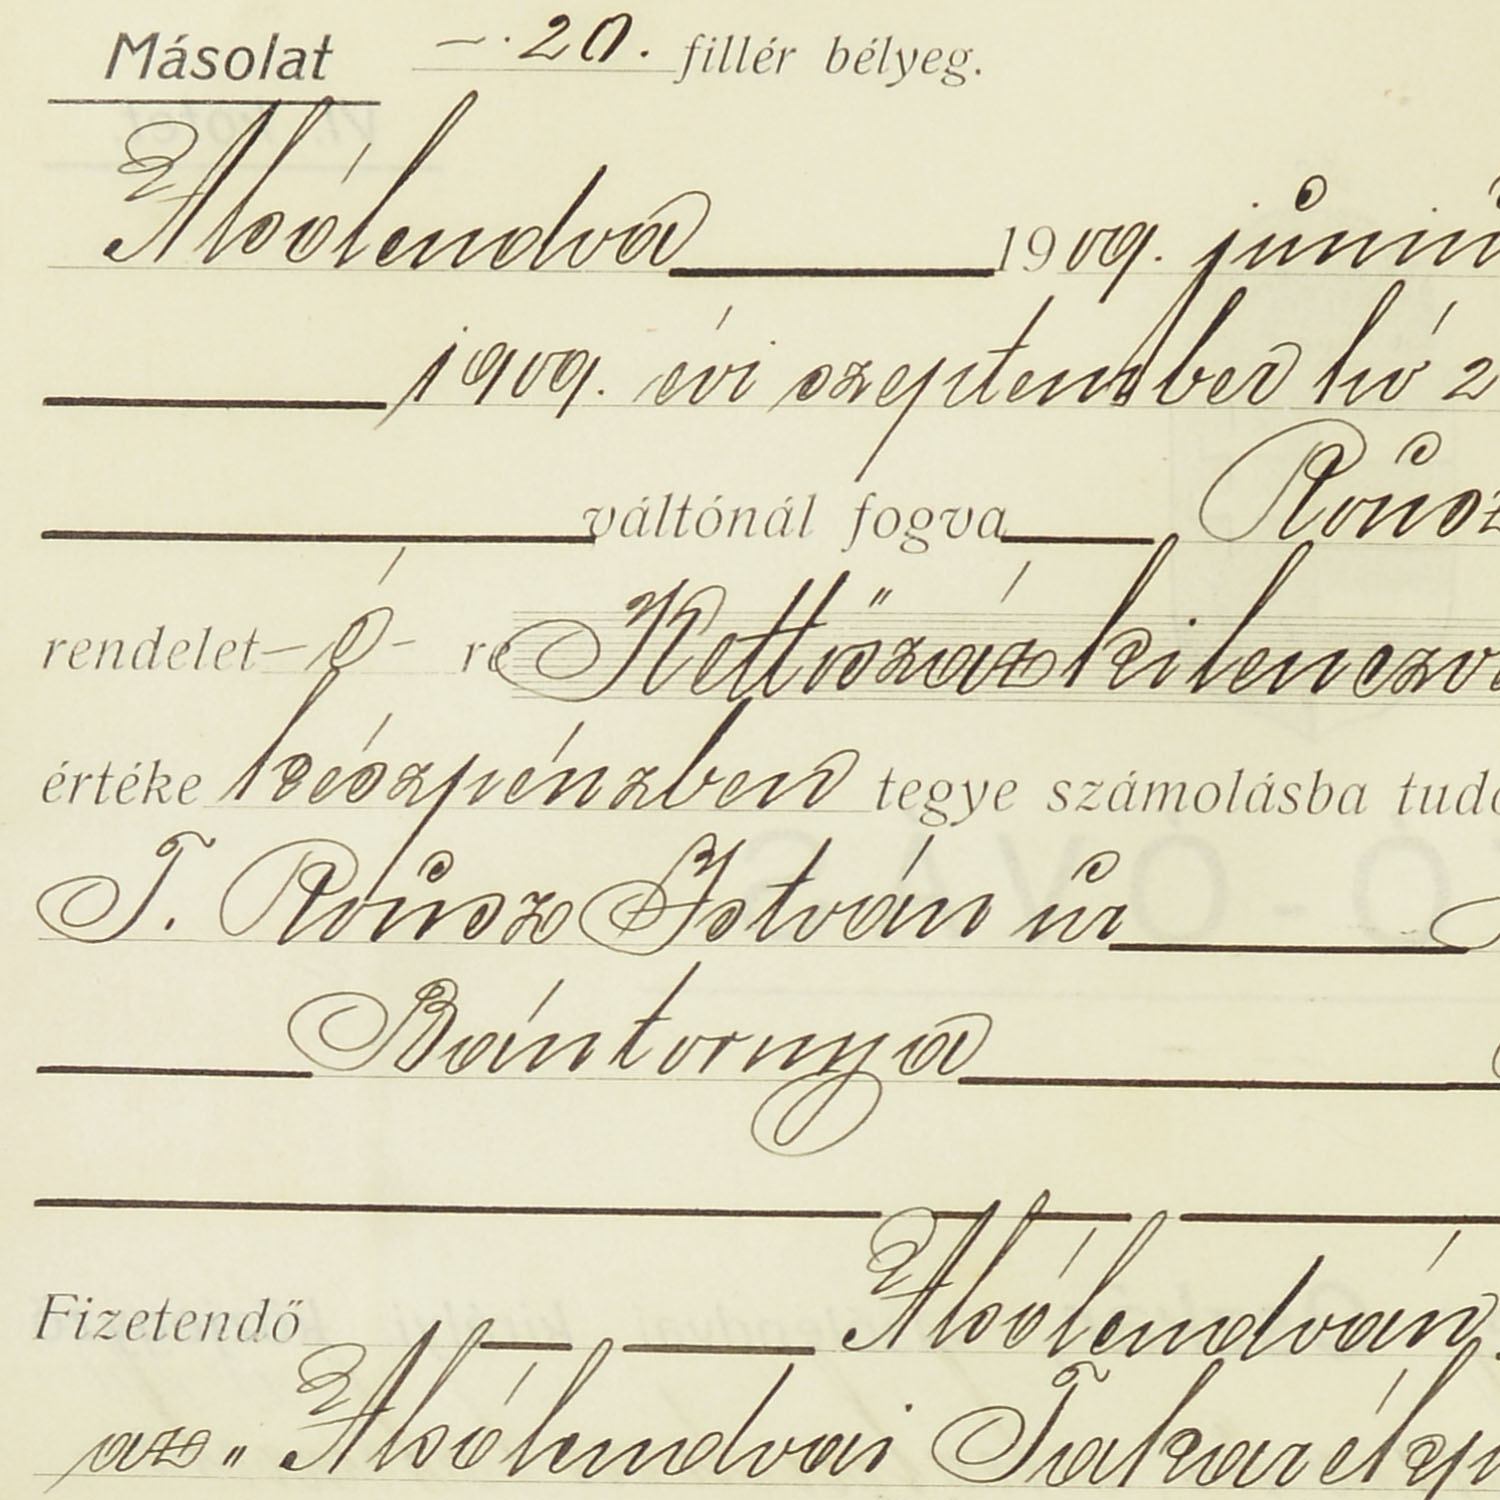 Másolat —·20. fillér bélyeg.
Alsólendva 1909. június
1909. évi szeptember hó 2
váltónál fogva Rúusz
rendelet —é— re Kettőszáz kilenczve
értéke készpénzben tegye számolásba tudó
T. Rúusz István úr
Bántornya
Fizetendő Alsólendván.
az „Alsólendvai Takarékp